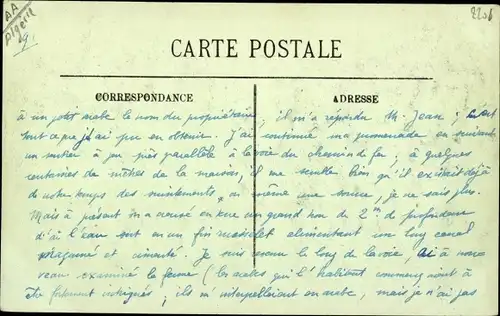 AA
Algérie
CARTE POSTALE
CORRESPONDANCE
ADRESSE
à un petit arabe le nom du propriétaire, il m'a répondu M. Jean ; c'est
tout ce que j'ai pu en obtenir. J'ai continué ma promenade en suivant
un sentier à peu près parallèle à la voie du chemin de fer ; à quelques
centaines de mètres de la maison, il me semble bien qu'il existait déjà
de notre temps des suintements, ou même une source, je ne sais plus.
Mais à présent on a creusé en rue un grand trou de 2m de profondeur
d'où l'eau sort en un fin ruisselet alimentant un long canal
maçonné et cimenté. Je suis revenu le long de la voie, ai à nouveau
examiné la ferme (les arabes qui l'habitent commençaient à
être fortement intrigués ; ils m'interpellaient en arabe, mais je n'ai pas